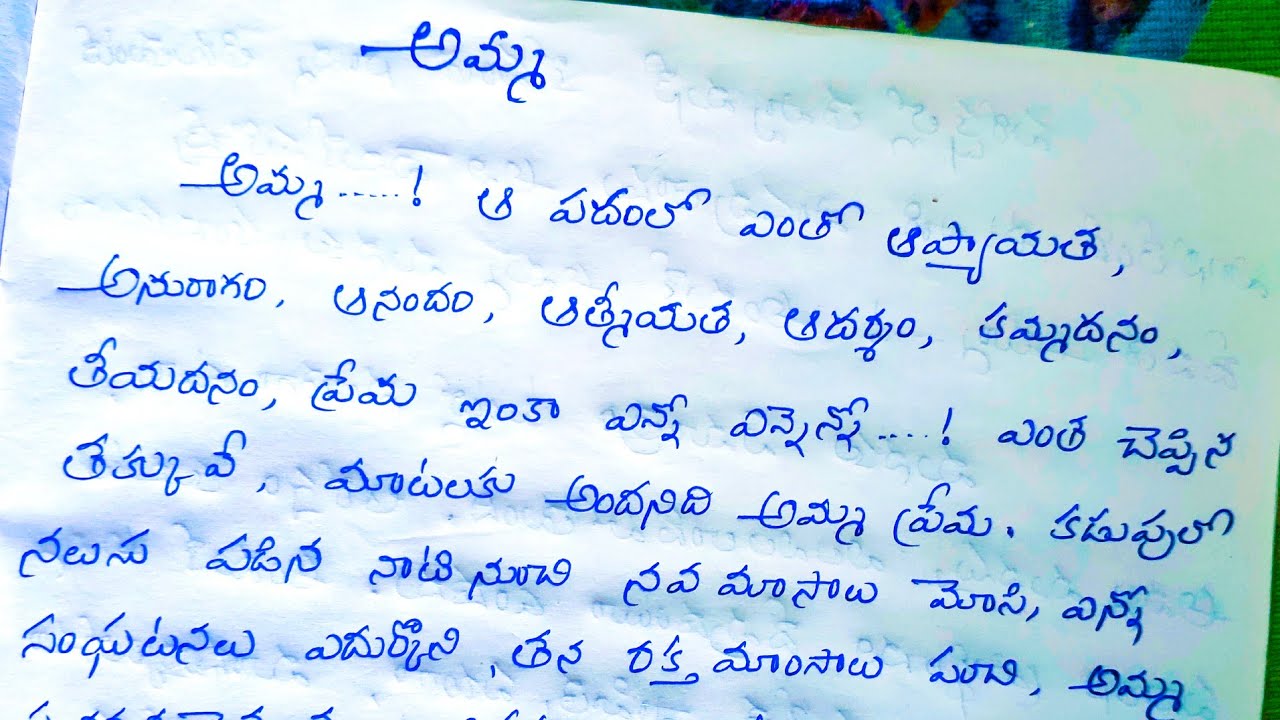 అమ్మ
అమ్మ.....! ఆ పదంలో ఎంతో ఆప్యాయత,
అనురాగం, ఆనందం, ఆత్మీయత, ఆదర్శం, కమ్మదనం,
తీయదనం, ప్రేమ ఇంకా ఎన్నో ఎన్నెన్నో....! ఎంత చెప్పిన
తక్కువే, మాటలకు అందనిది అమ్మ ప్రేమ. కడుపులో
నలుసు పడిన నాటినుంచి నవ మాసాలు మోసి, ఎన్నో
సంఘటనలు ఎదుర్కొని, తన రక్త మాంసాలు పంచి, అమ్మ